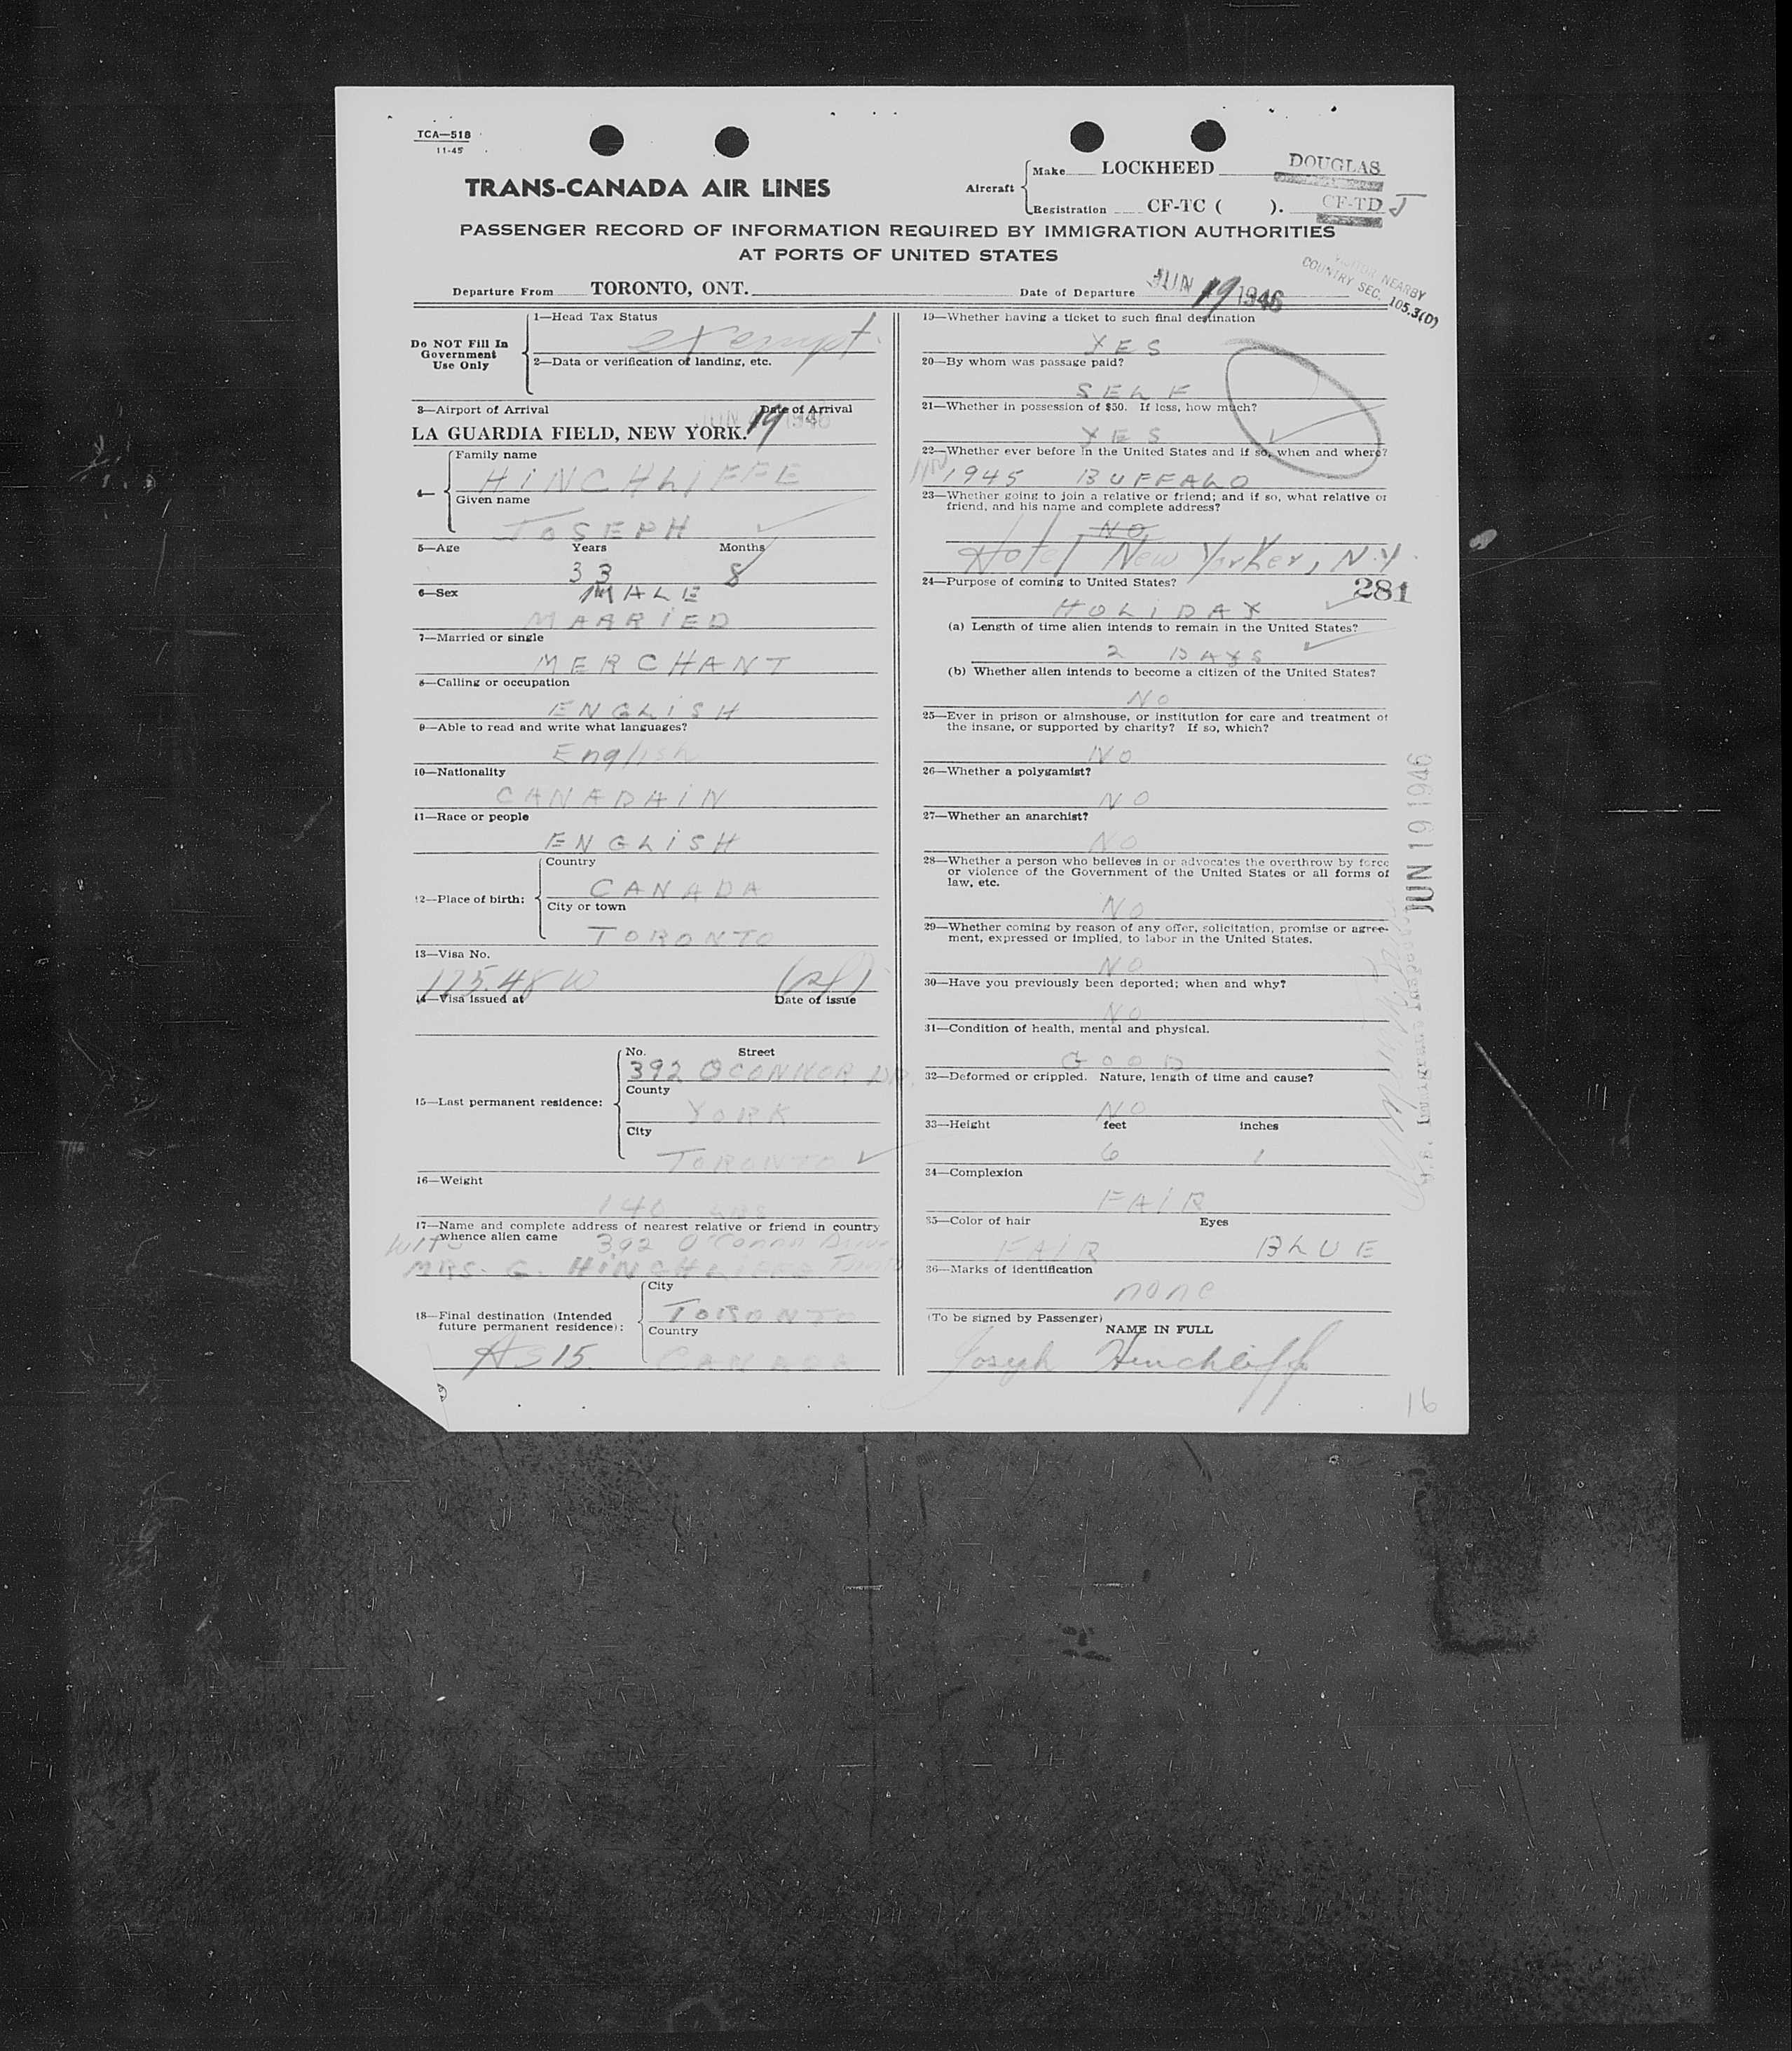 TCA—518
11-45
TRANS-CANADA AIR LINES
Aircraft
Make LOCKHEED DOUGLAS
Registration CF-TC ( ). CF-TD J
PASSENGER RECORD OF INFORMATION REQUIRED BY IMMIGRATION AUTHORITIES
AT PORTS OF UNITED STATES
VISITOR NEARBY
COUNTRY SEC. 105.3(D)
Departure From TORONTO, ONT. Date of Departure JUN 19 1946
Do NOT Fill In
Government
Use Only
1—Head Tax Status
exempt
2—Data or verification of landing, etc.
3—Airport of Arrival Date of Arrival
LA GUARDIA FIELD, NEW YORK. JUN 19 1946
4— Family name
HINCHLIFFE
Given name
JOSEPH
5—Age Years Months
33 8
6—Sex MALE
MARRIED
7—Married or single
MERCHANT
8—Calling or occupation
ENGLISH
9—Able to read and write what languages?
English
10—Nationality
CANADAIN
11—Race or people
ENGLISH
12—Place of birth:
Country
CANADA
City or town
TORONTO
13—Visa No.
175.48 W
14—Visa issued at Date of issue
15—Last permanent residence:
No. Street
392 OCONNOR DR.
County
YORK
City
TORONTO
16—Weight
140 LBS
17—Name and complete address of nearest relative or friend in country
whence alien came
392 O'Connor Drive
MRS. G. HINCHLIFFE
18—Final destination (Intended
future permanent residence):
City
TORONTO
Country
CANADA
AS 15
19—Whether having a ticket to such final destination
YES
20—By whom was passage paid?
SELF
21—Whether in possession of $50. If less, how much?
YES
22—Whether ever before in the United States and if so, when and where?
1945 BUFFALO
23—Whether going to join a relative or friend; and if so, what relative or
friend, and his name and complete address?
NO
Hotel New Yorker, N.Y.
24—Purpose of coming to United States?
281
HOLIDAY
(a) Length of time alien intends to remain in the United States?
2 DAYS
(b) Whether alien intends to become a citizen of the United States?
NO
25—Ever in prison or almshouse, or institution for care and treatment of
the insane, or supported by charity? If so, which?
NO
26—Whether a polygamist?
NO
27—Whether an anarchist?
NO
28—Whether a person who believes in or advocates the overthrow by force
or violence of the Government of the United States or all forms of
law, etc.
NO
29—Whether coming by reason of any offer, solicitation, promise or agree-
ment, expressed or implied, to labor in the United States.
NO
30—Have you previously been deported; when and why?
NO
31—Condition of health, mental and physical.
GOOD
32—Deformed or crippled. Nature, length of time and cause?
NO
33—Height feet inches
6 1
34—Complexion
FAIR
35—Color of hair Eyes
FAIR BLUE
36—Marks of identification
none
(To be signed by Passenger)
NAME IN FULL
Joseph Hinchliffe
16
JUN 19 1946
U.S. Immigrant Inspector